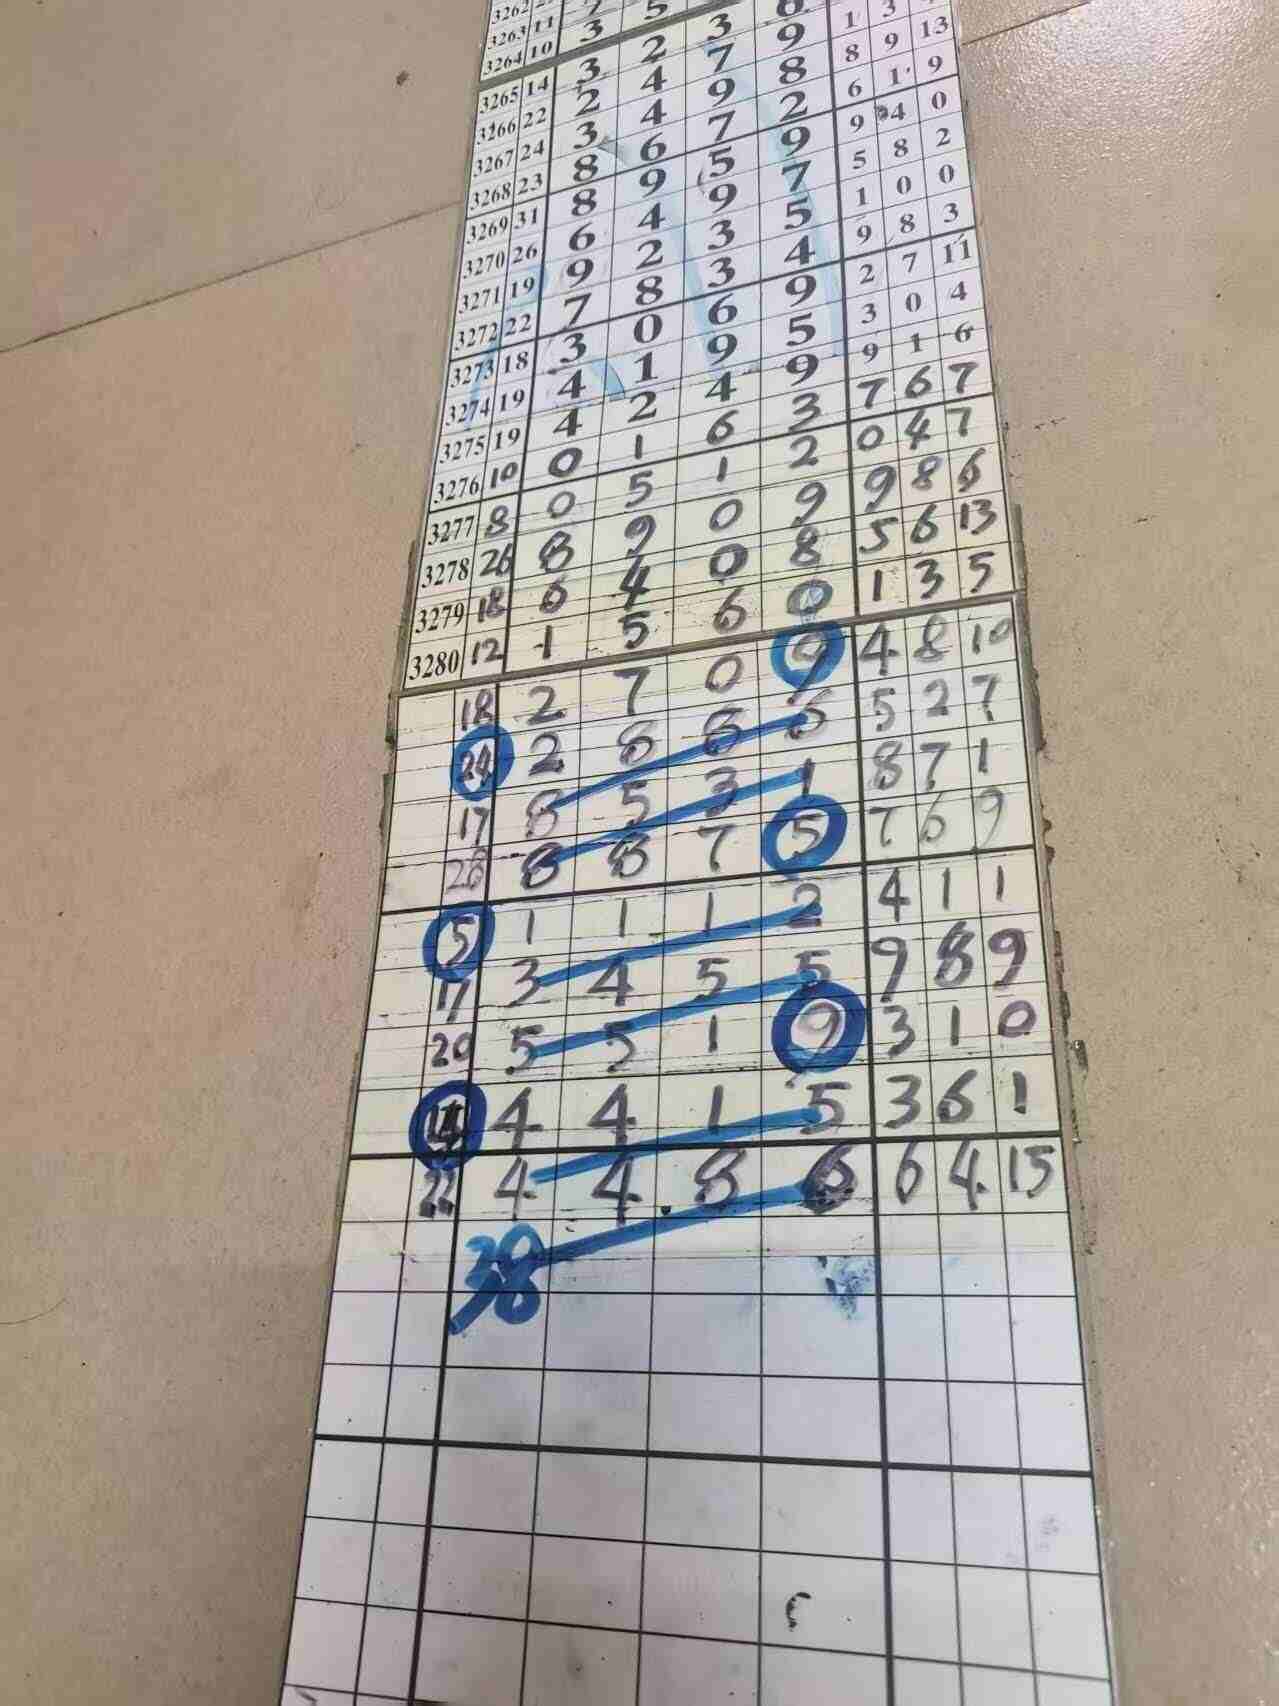 3262
3263 11
3264 10 3 5
3265 14 3 2 3 6
3266 22 2 4 7 9 1 3
3267 24 3 4 9 8 8 9 13
3268 23 8 6 7 2 6 1 9
3269 31 8 9 5 9 9 4 0
3270 26 6 4 9 7 5 8 2
3271 19 9 2 3 5 1 0 0
3272 22 7 8 3 4 9 8 3
3273 18 3 0 6 9 2 7 11
3274 19 4 1 9 5 3 0 4
3275 19 4 2 4 9 9 1 6
3276 10 0 1 6 3 7 6 7
3277 8 0 5 1 2 0 4 7
3278 26 8 9 0 9 9 8 6
3279 18 6 4 0 8 5 6 13
3280 12 1 5 6 0 1 3 5
18 2 7 0 9 4 8 10
24 2 8 8 6 5 2 7
17 8 5 3 1 8 7 1
28 8 8 7 5 7 6 9
5 1 1 1 2 4 1 1
17 3 4 5 5 9 8 9
20 5 5 1 9 3 1 0
14 4 4 1 5 3 6 1
22 4 4 8 6 6 4 15
38